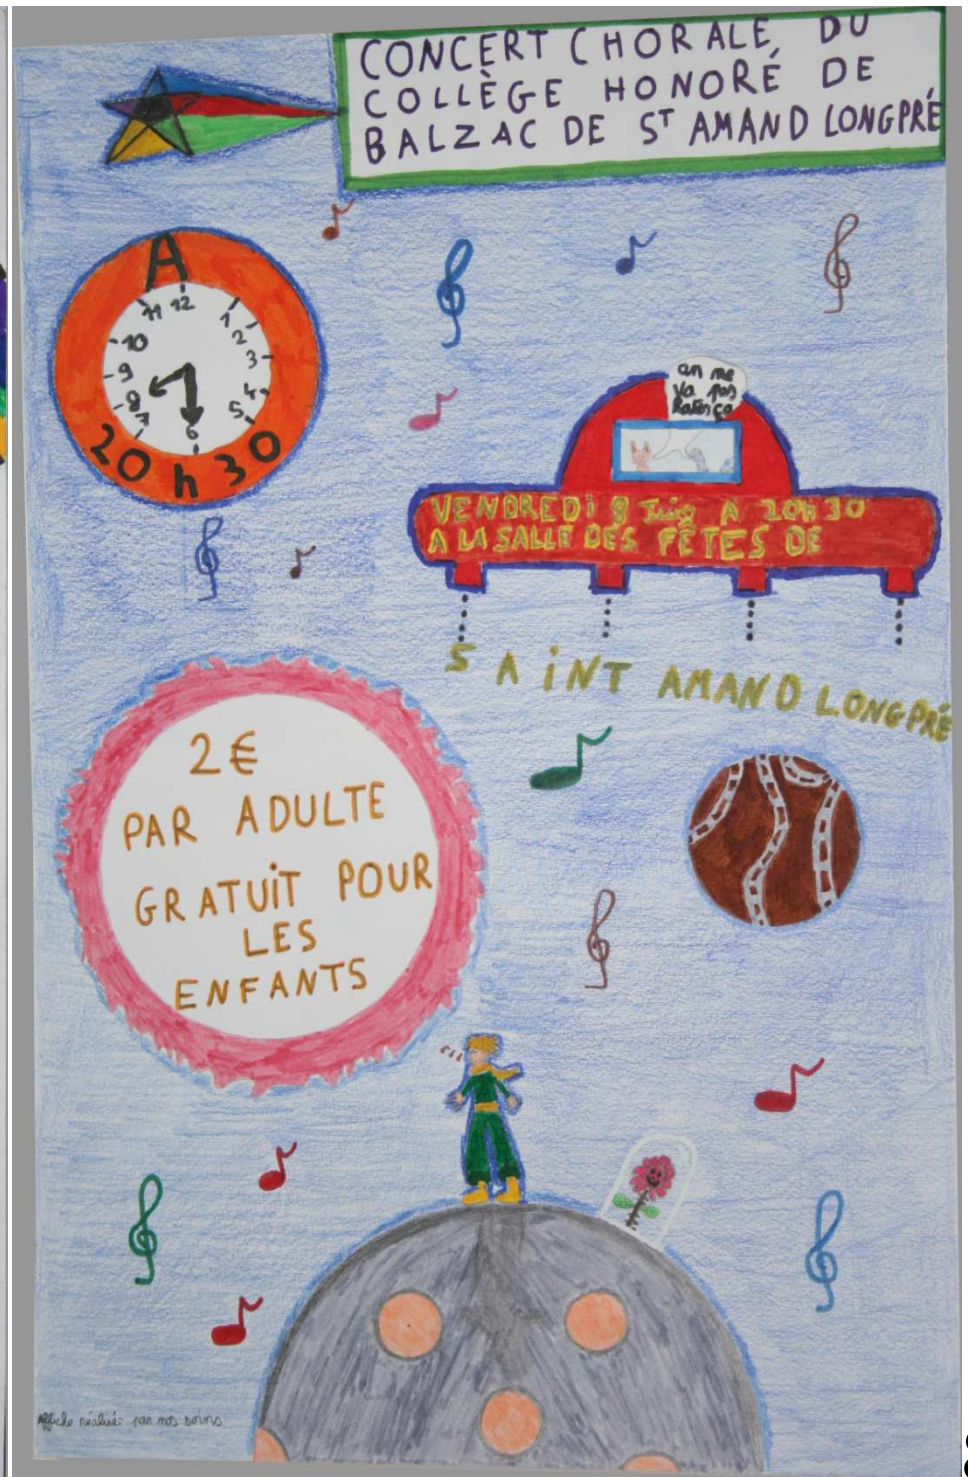 CONCERT CHORALE, DU
COLLÈGE HONORÉ DE
BALZAC DE ST AMAND LONGPRÉ
A
11 12 1
10 2
9 3
8 4
7 6 5
20 h 30
on me
va pas
Rater ça
VENDREDI 8 Juin A 20h30
A LA SALLE DES FÊTES DE
SAINT AMAND LONGPRÉ
2€
PAR ADULTE
GRATUIT POUR
LES
ENFANTS
Affiche réalisée par nos soins